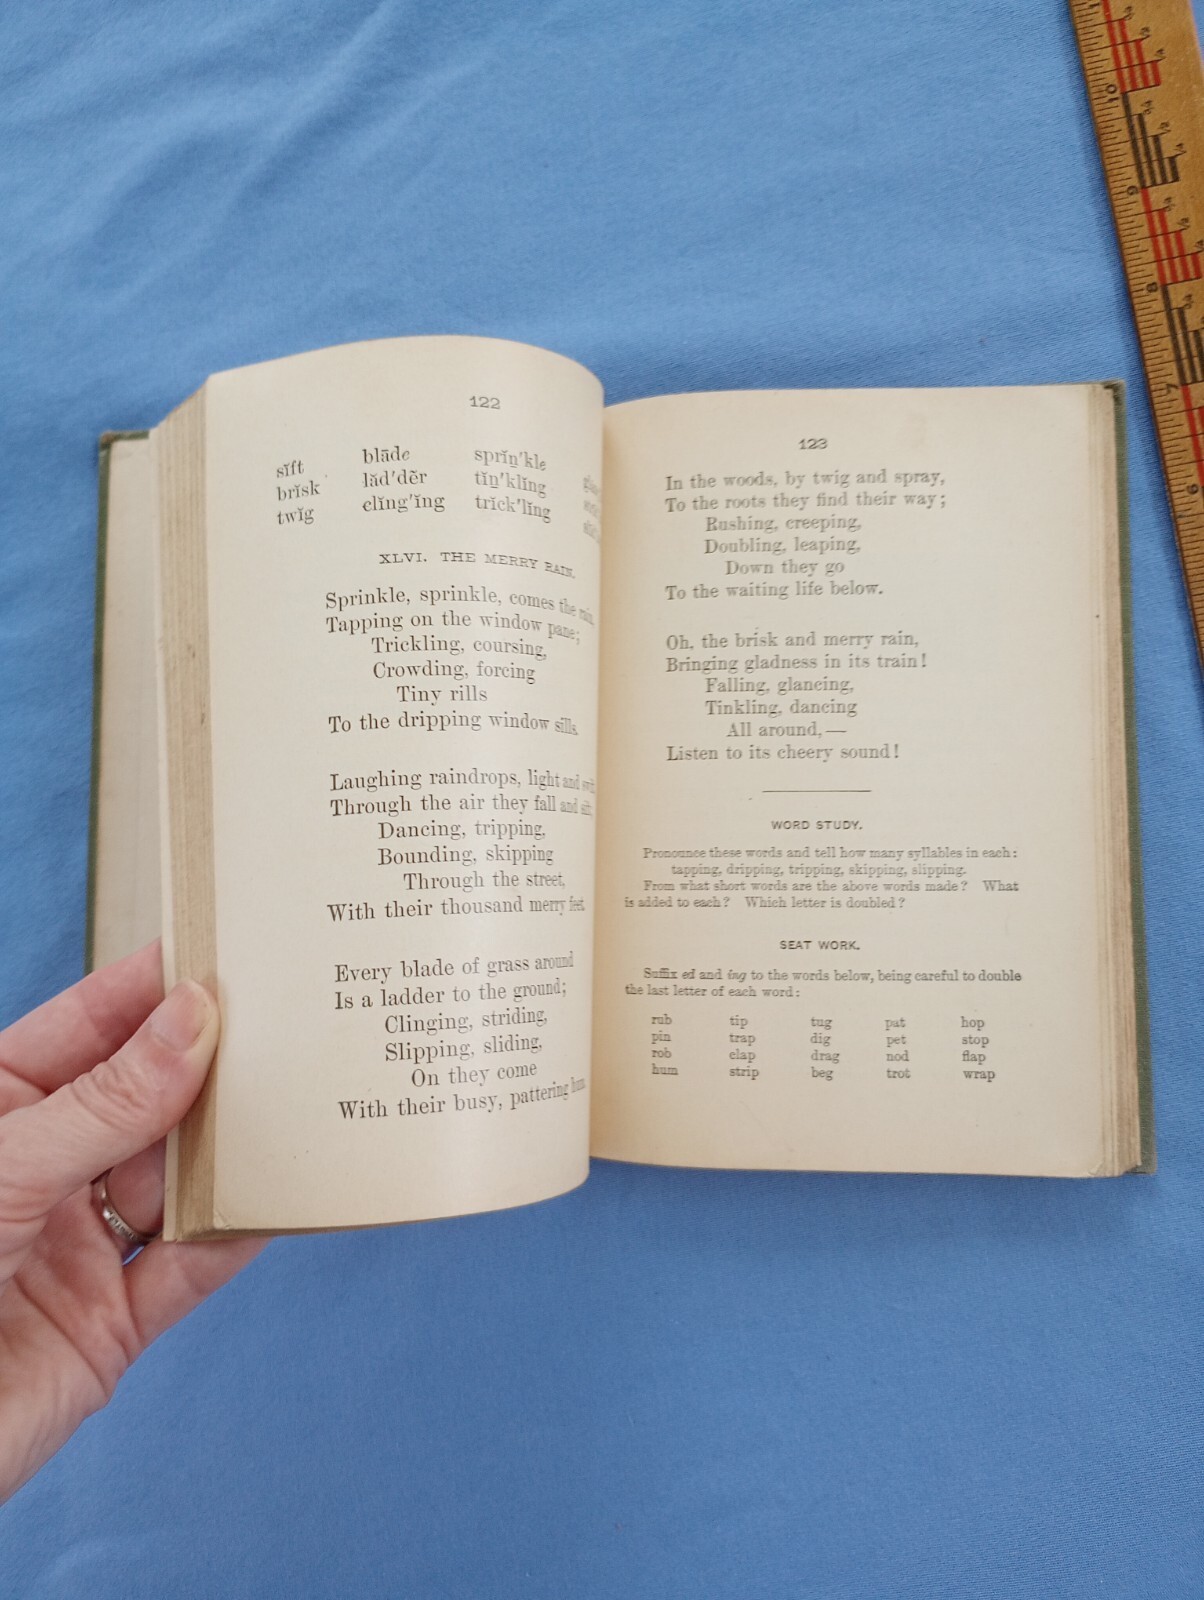 122
sĭft blāde sprĭṉ'kle
brĭsk lăd'dẽr tĭṉ'klĭng
twĭg clĭng'ĭng trĭck'lĭng
XLVI. THE MERRY RAIN.
Sprinkle, sprinkle, comes the rain,
Tapping on the window pane;
Trickling, coursing,
Crowding, forcing
Tiny rills
To the dripping window sills.
Laughing raindrops, light and
Through the air they fall and
Dancing, tripping,
Bounding, skipping
Through the street,
With their thousand merry feet.
Every blade of grass around
Is a ladder to the ground;
Clinging, striding,
Slipping, sliding,
On they come
With their busy, pattering hum.
123
In the woods, by twig and spray,
To the roots they find their way;
Rushing, creeping,
Doubling, leaping,
Down they go
To the waiting life below.
Oh, the brisk and merry rain,
Bringing gladness in its train!
Falling, glancing,
Tinkling, dancing
All around,—
Listen to its cheery sound!
WORD STUDY.
Pronounce these words and tell how many syllables in each:
tapping, dripping, tripping, skipping, slipping.
From what short words are the above words made? What
is added to each? Which letter is doubled?
SEAT WORK.
Suffix ed and ing to the words below, being careful to double
the last letter of each word:
rub tip tug pat hop
pin trap dig pet stop
rob clap drag nod flap
hum strip beg trot wrap
10
9
8
7
6